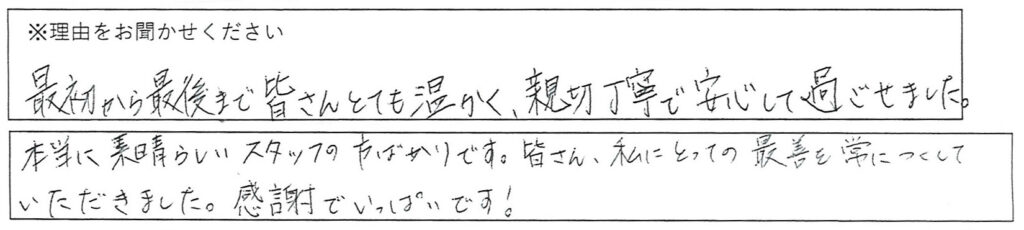 ※理由をお聞かせください
最初から最後まで皆さんとても温かく、親切丁寧で安心して過ごせました。
本当に素晴らしいスタッフの方ばかりです。皆さん、私にとっての最善を常につくして
いただきました。感謝でいっぱいです!